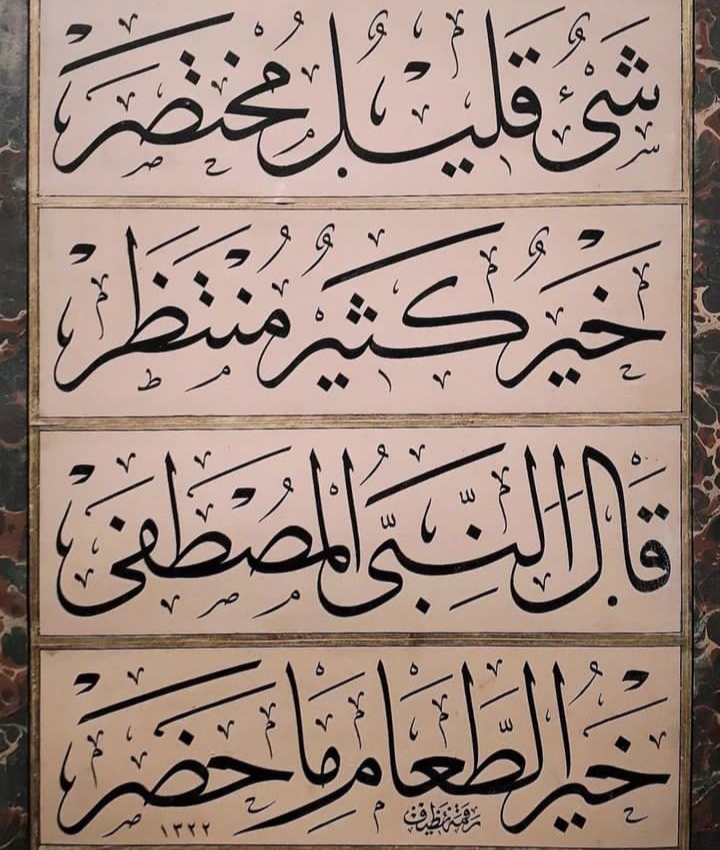 شَیْءٌ قَلِيلٌ مُخْتَصَرْ
خَيْرٌ كَثِيرٌ مُنْتَظَرْ
قَالَ النَّبِيُّ الْمُصْطَفَى
خَيْرُ الطَّعَامِ مَا حَضَرْ
رقمه نظيف
١٣٢٢